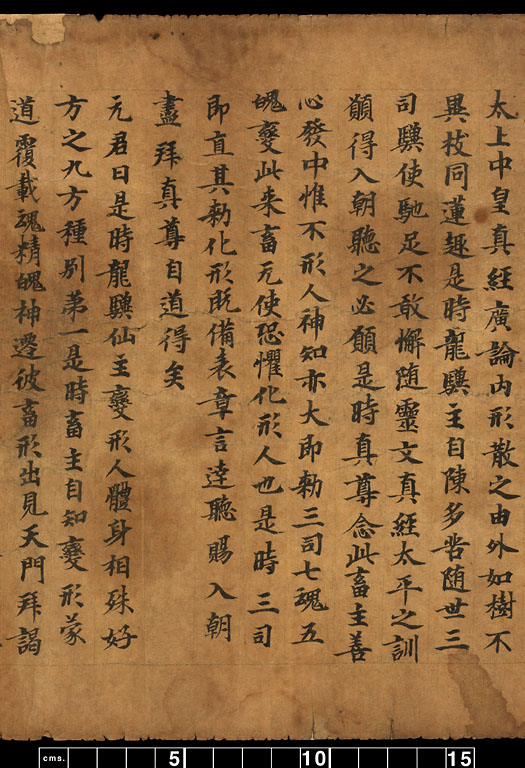 太上中皇真經廣論内形散之由外如樹不
異枝同蓮趣是時龍驥主自陳多苦随世三
司驥使馳足不敢懈随靈文真經太平之訓
願得入朝聽之必願是時真尊念此畜主善
心發中惟不形人神知亦大即勑三司七魂五
魄變此来畜元使恐懼化形人也是時三司
即直其勑化形既備表章言逹聽賜入朝
盡拜真尊自道得矣
元君曰是時龍驥仙主變形人體身相殊好
方之九方種别苐一是時畜主自知變形蒙
道覆載魂精魄神遷彼畜形出見天門拜謁
cms. 5 10 15